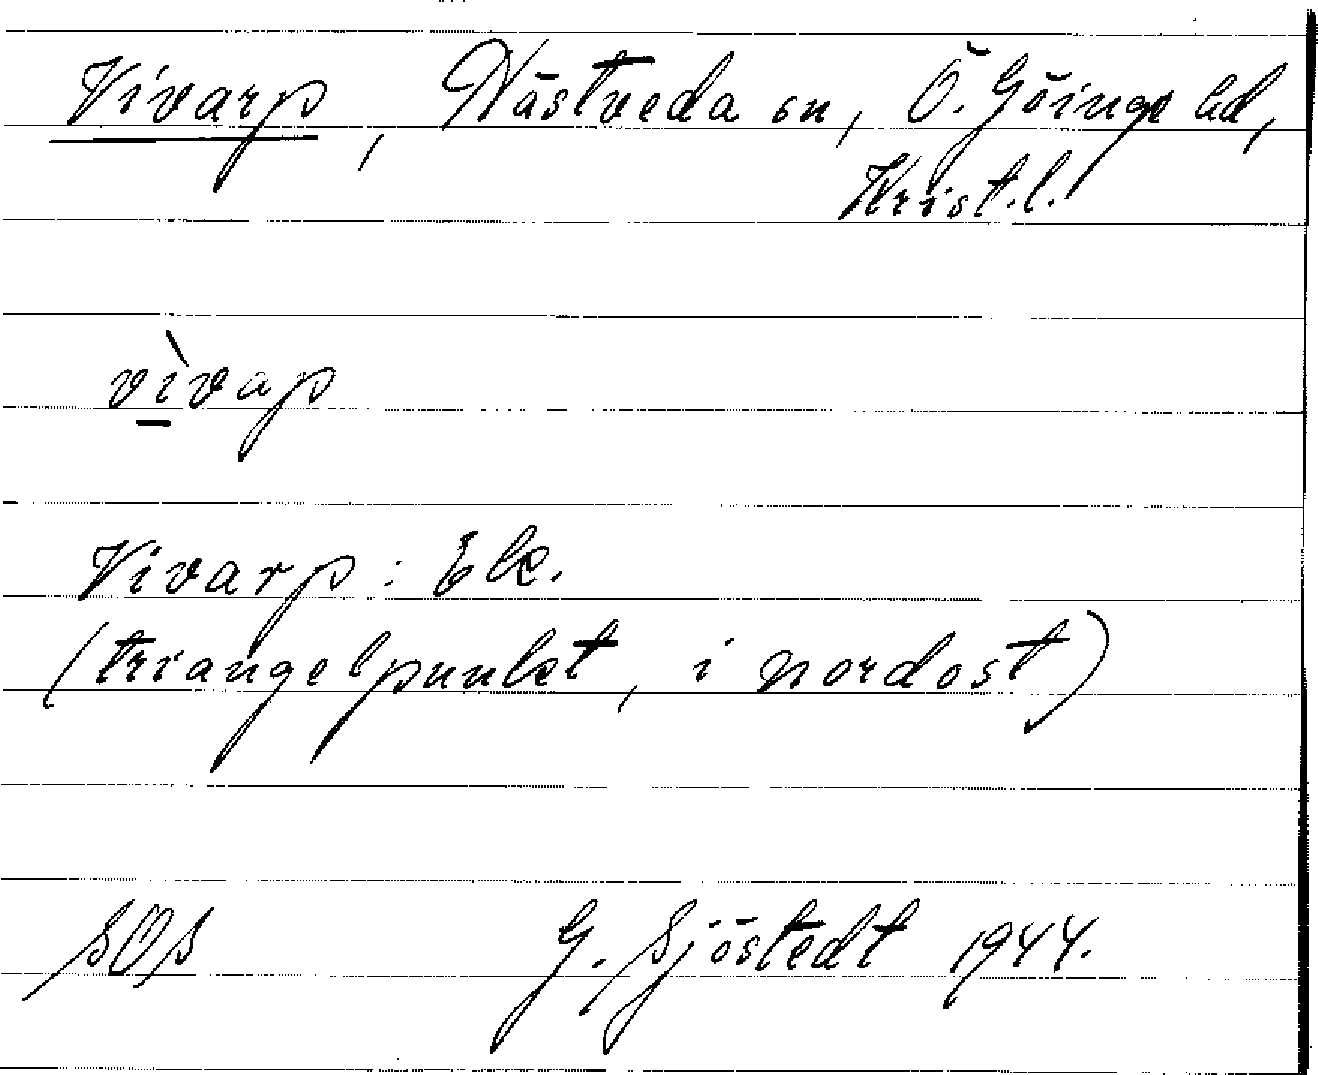 Vivarp, Nästveda sn, Ö. Göinge hd,
Krist.l.
vìvap
Vivarp: Ek.
(triangelpunkt, i nordost)
SOS G. Sjöstedt 1944.